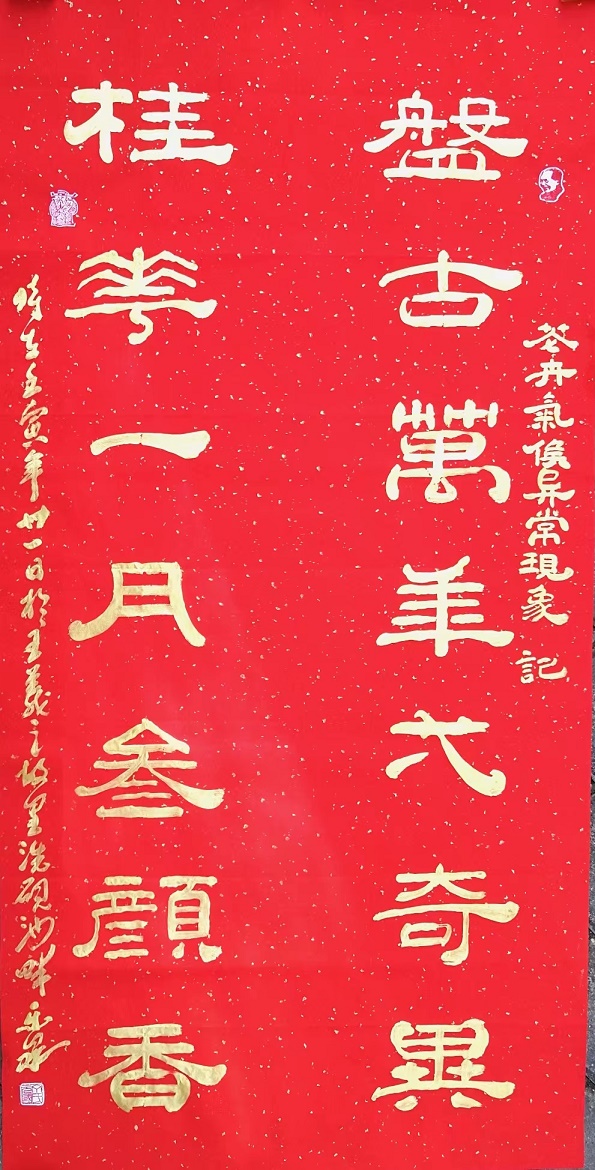 花卉氣候异常現象 記
盤古萬年六奇異
桂華一月叁顏香
時在壬寅年卅一日於王羲之故里洗硯池畔